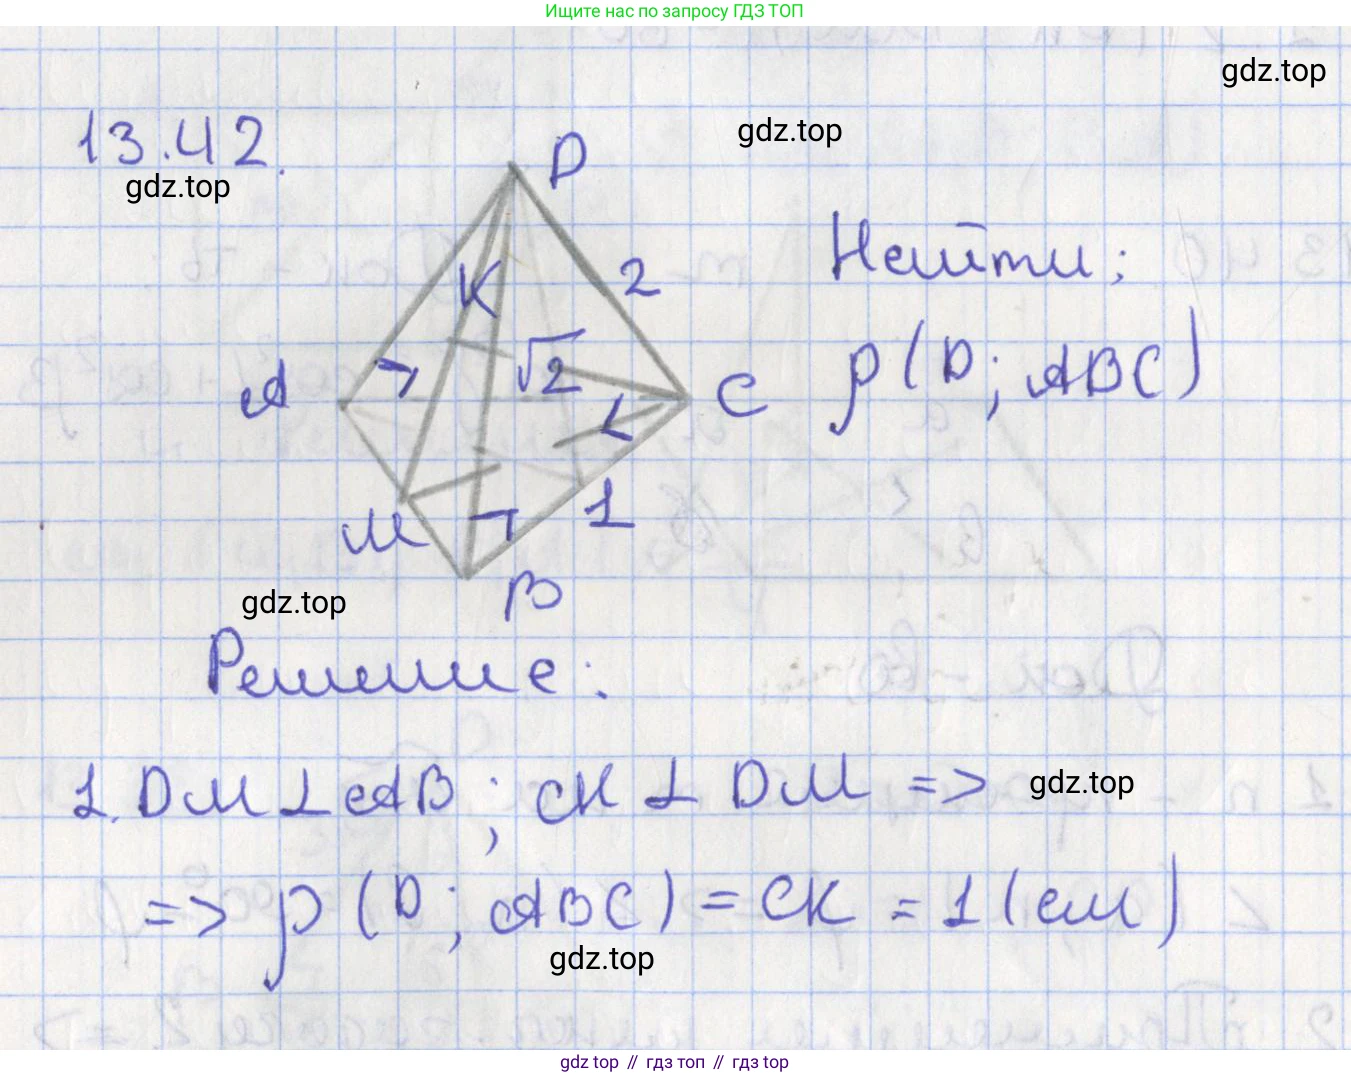 Ищите нас по запросу ГДЗ ТОП
gdz.top
13.42.
gdz.top
gdz.top
D
K
2
√2
A
C
M
1
B
Найти:
ρ(D; ABC)
gdz.top
Решение:
1. DM ⊥ AB; CK ⊥ DM =>
gdz.top
=> ρ(D; ABC) = CK = 1 (см)
gdz.top
gdz.top // гдз топ // гдз top